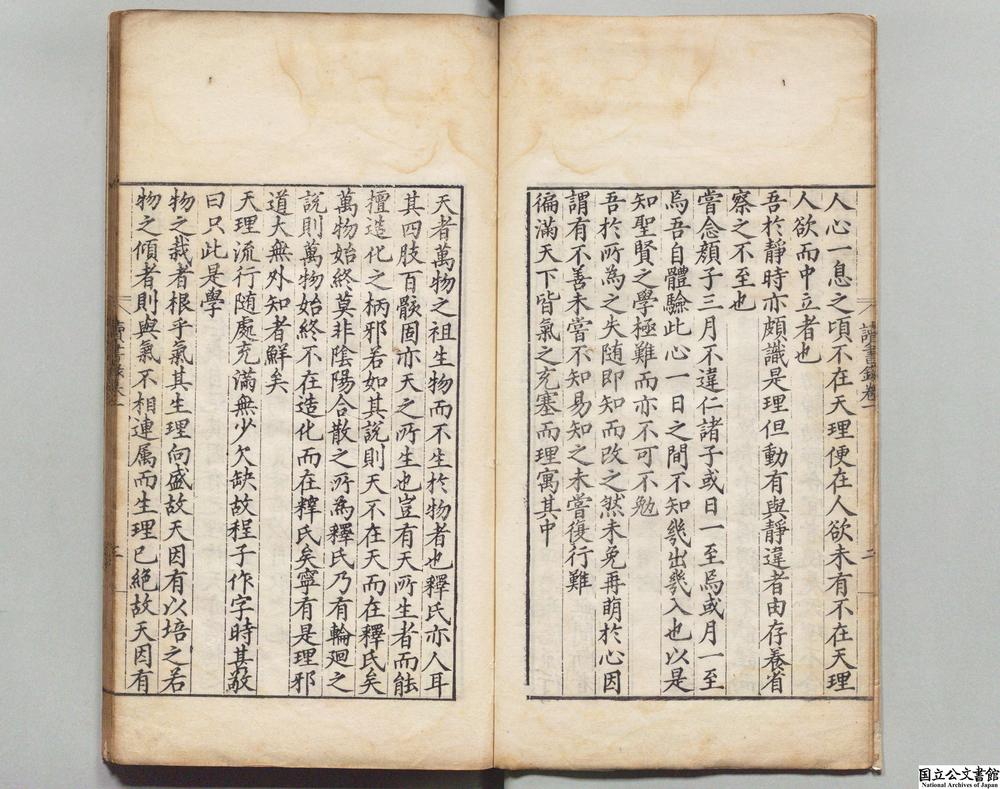 人心一息之頃不在天理便在人欲未有不在天理
人欲而中立者也
吾於靜時亦頗識是理但動有與靜違者由存養省
察之不至也
嘗念顏子三月不違仁諸子或日一至焉或月一至
焉吾自體驗此心一日之間不知幾出幾入也以是
知聖賢之學極難而亦不可不勉
吾於所為之失随即知而改之然未免再萌於心因
謂有不善未嘗不知易知之未嘗復行難
徧滿天下皆氣之充塞而理寓其中
讀書錄卷一
二
天者萬物之祖生物而不生於物者也釋氏亦人耳
其四肢百骸固亦天之所生也豈有天所生者而能
擅造化之柄邪若如其說則天不在天而在釋氏矣
萬物始終莫非陰陽合散之所為釋氏乃有輪廻之
說則萬物始終不在造化而在釋氏矣寧有是理邪
道大無外知者鮮矣
天理流行随處充滿無少欠缺故程子作字時甚敬
曰只此是學
物之栽者根乎氣其生理向盛故天因有以培之若
物之傾者則與氣不相連属而生理已絕故天因有
讀書錄卷一
三
国立公文書館
National Archives of Japan